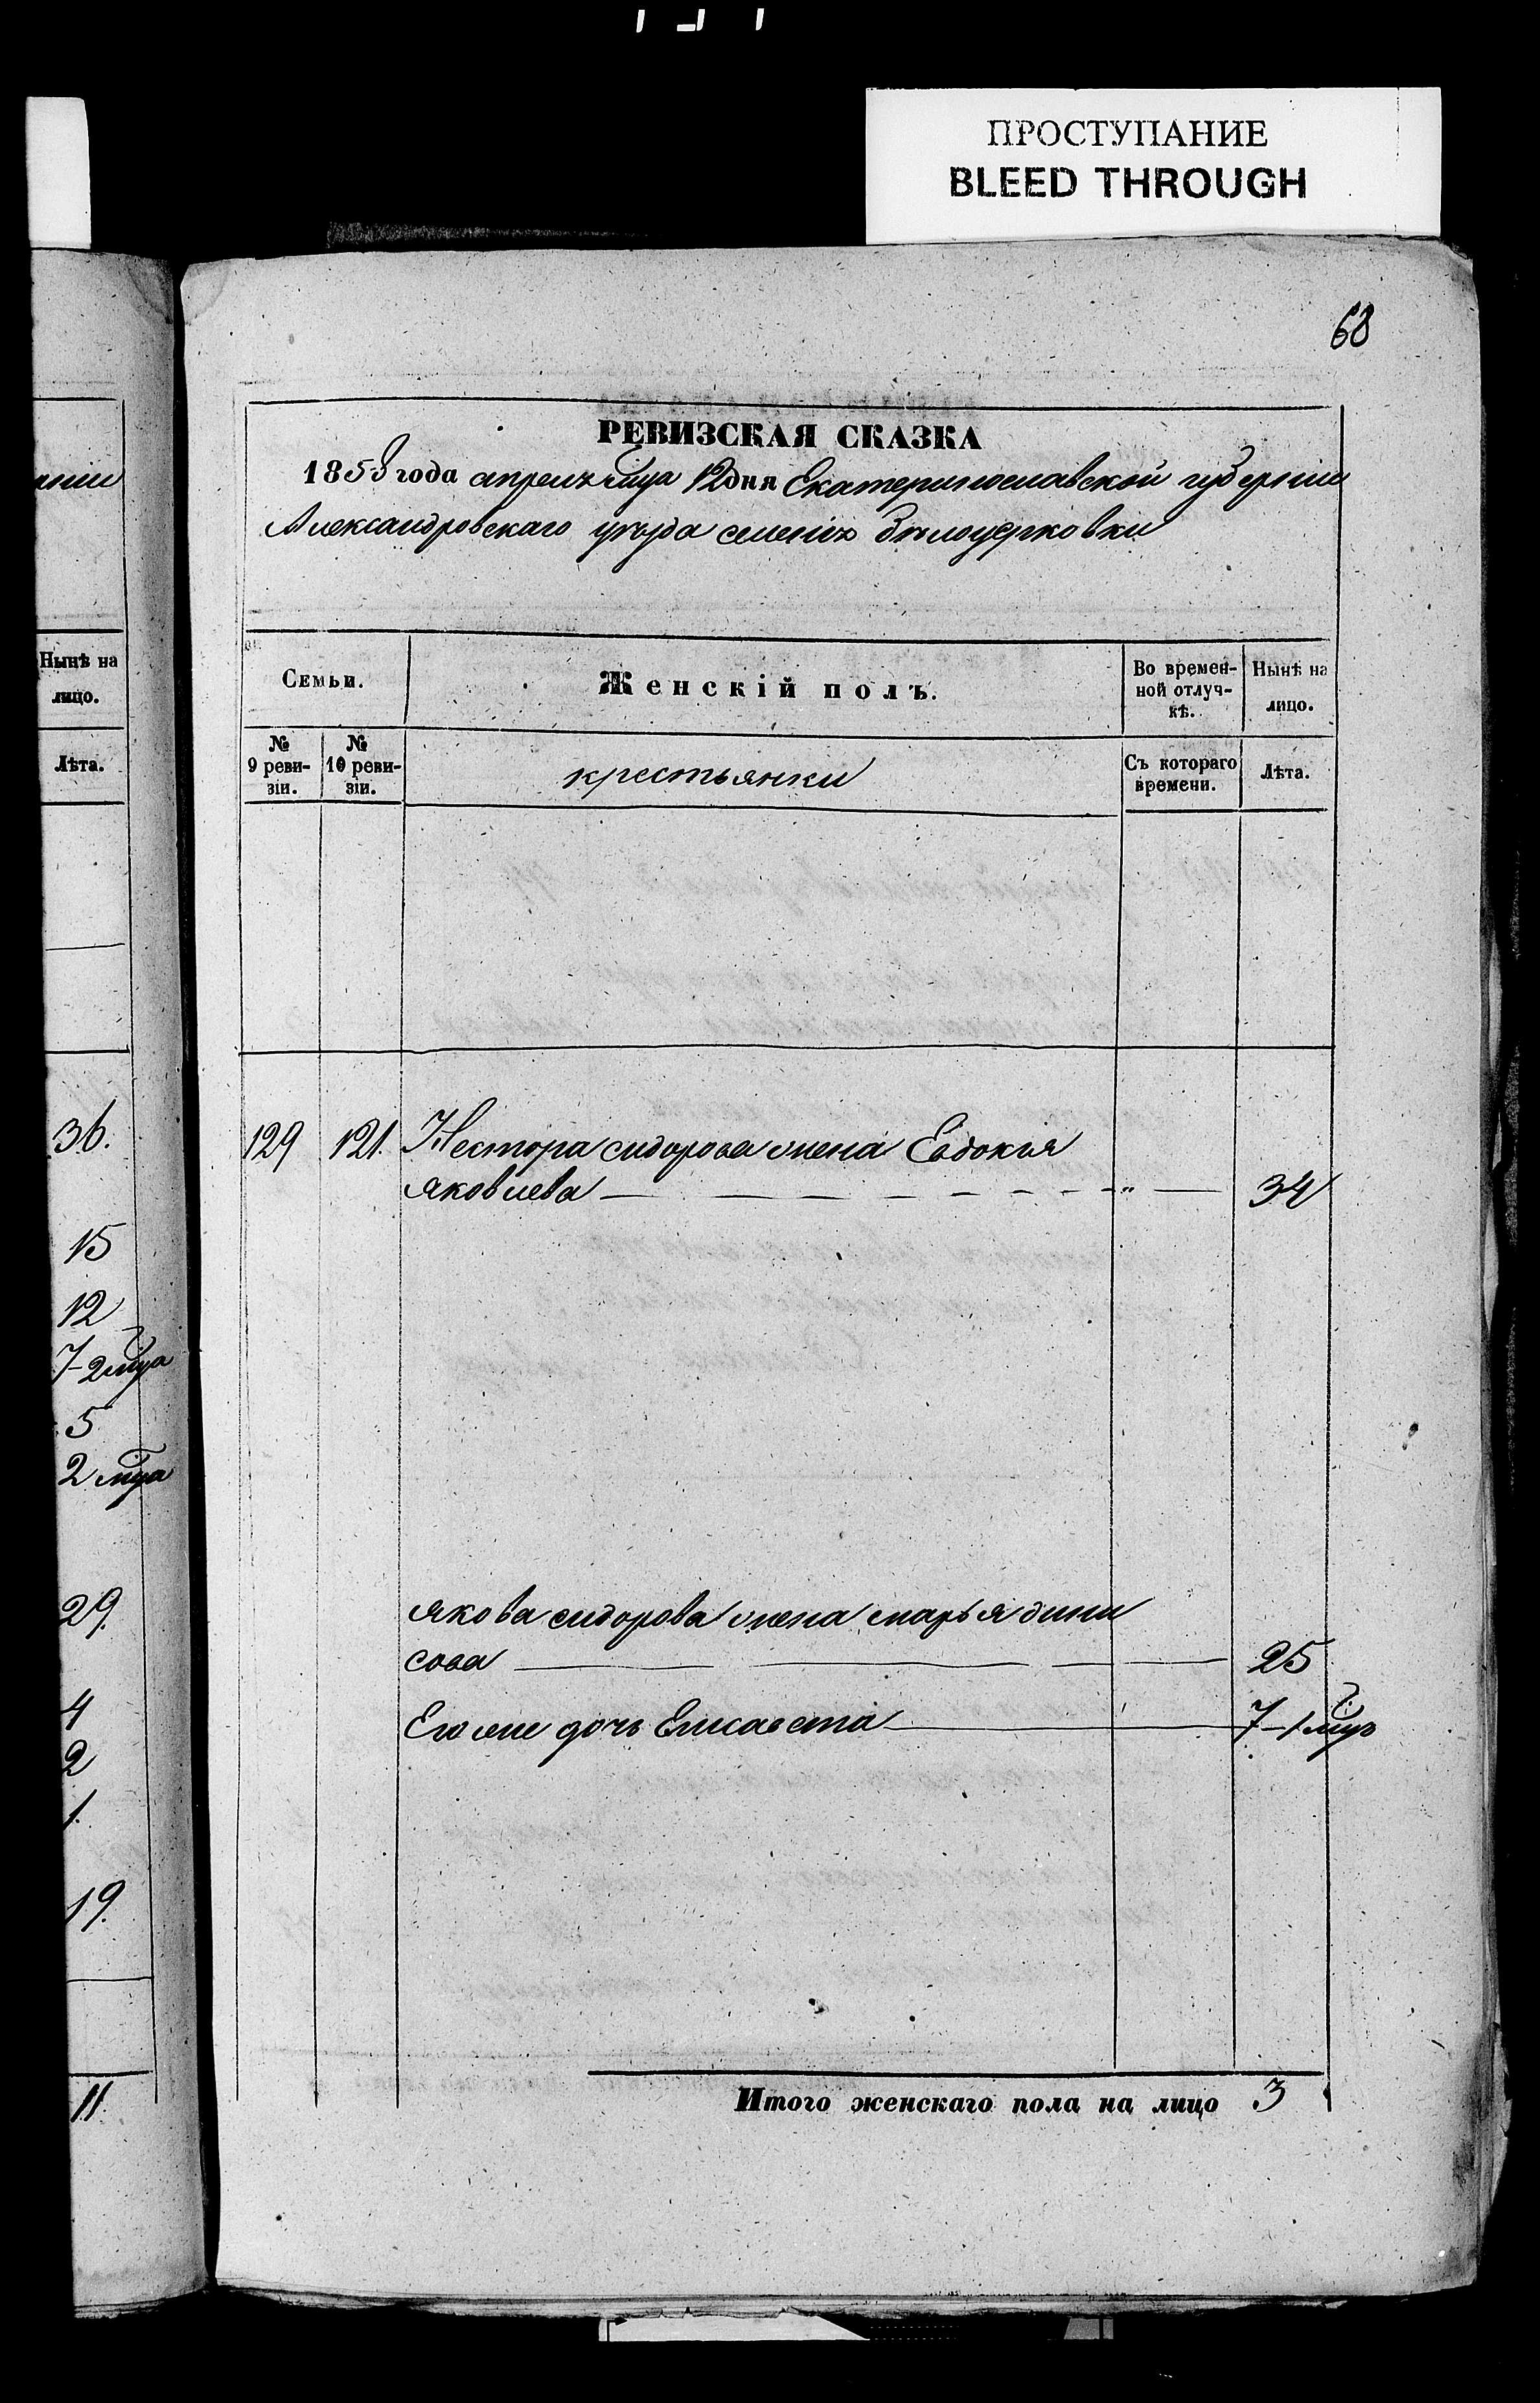 ПРОСТУПАНИЕ
BLEED THROUGH
68
РЕВИЗСКАЯ СКАЗКА
1858 года апреля мца 12 дня Екатеринославской губернии
Александровскаго уезда селенiя Белоцерковки
Нынѣ на
лицо.
Лѣта.
36.
15
12
7-2 мца
5
2 мца
29.
4
2
1.
19.
11
Семьи.
Женскій полъ.
Во времен-
ной отлуч-
кѣ.
Нынѣ на
лицо.
№
9 реви-
зіи.
№
10 реви-
зіи.
крестьянки
Съ котораго
времени.
Лѣта.
129 121. Нестора сидорова жена Евдокия
яковлева — „ — 34
якова сидорова жена марья дини
сова — 25
Его же дочь Елисавета — 7-1 мцъ
Итого женскаго пола на лицо 3